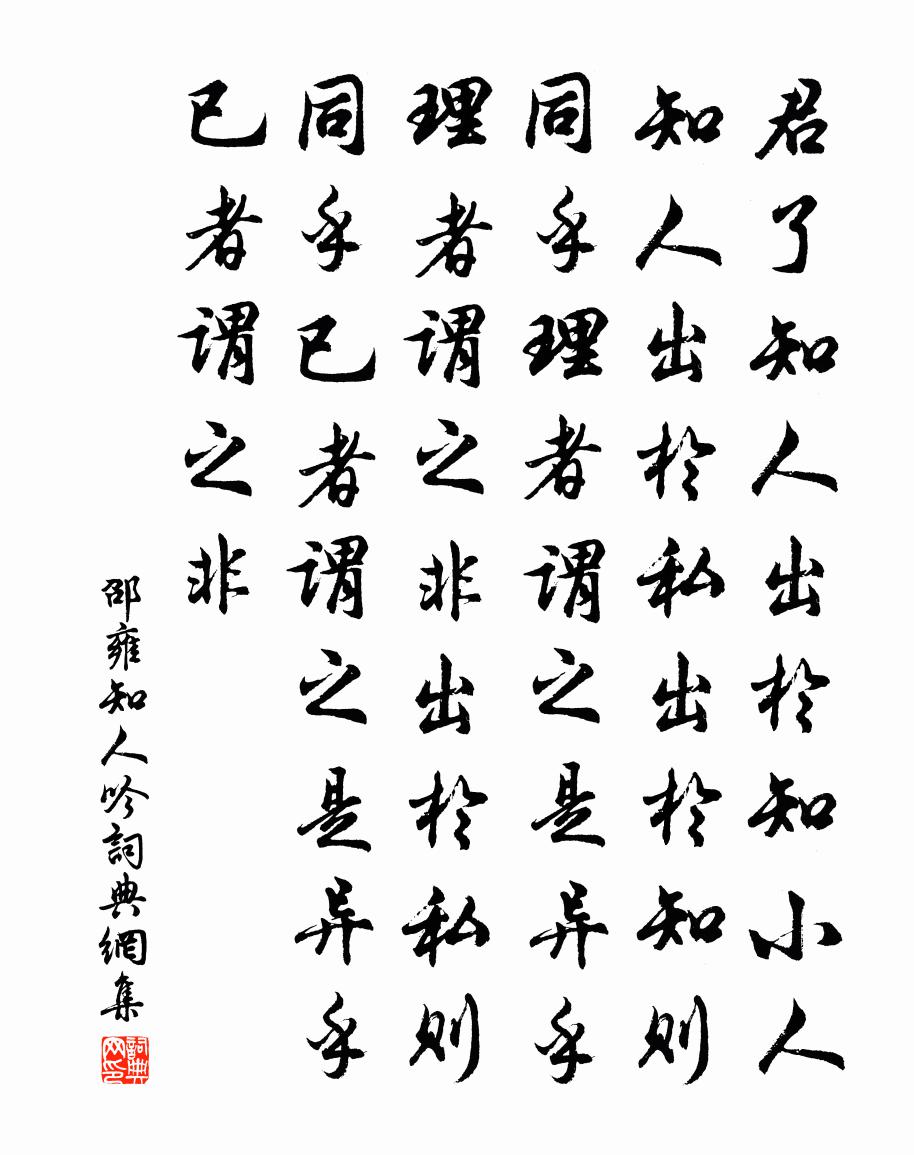 君了知人出於知小人
知人出於私出於知則
同乎理者謂之是异乎
理者謂之非出於私則
同乎已者謂之是异乎
已者謂之非
邵雍知人吟詞典網集
詞典网印